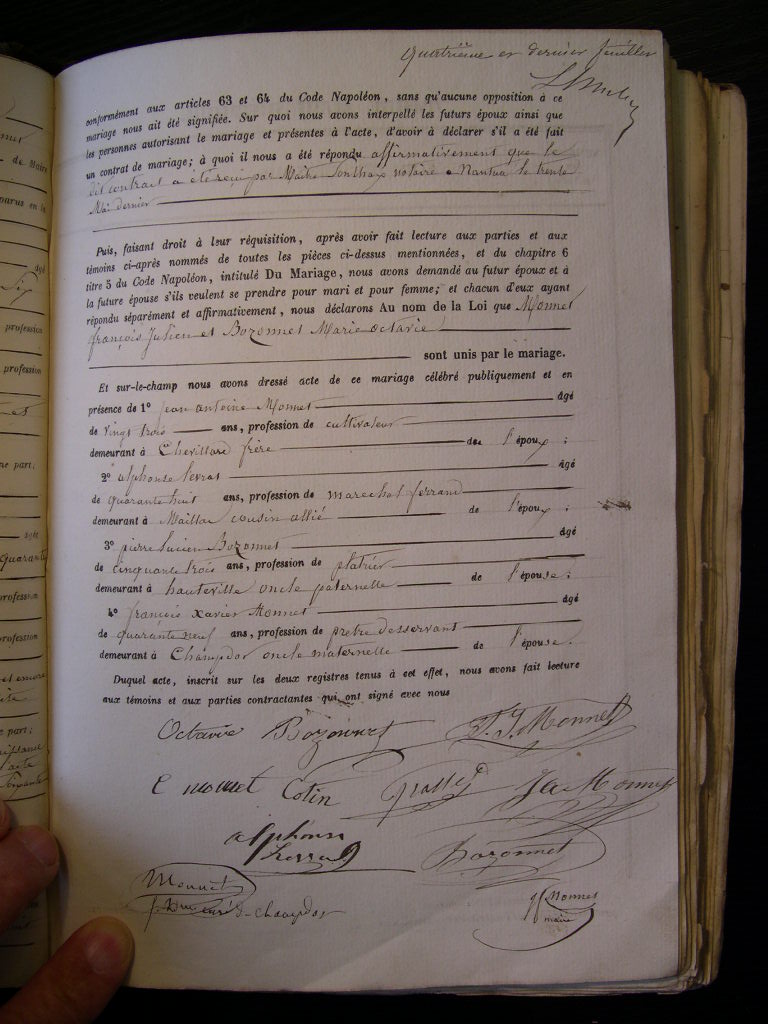 quatrième et dernier feuillet
conformément aux articles 63 et 64 du Code Napoléon, sans qu'aucune opposition à ce
mariage nous ait été signifiée. Sur quoi nous avons interpellé les futurs époux ainsi que
les personnes autorisant le mariage et présentes à l'acte, d'avoir à déclarer s'il a été fait
un contrat de mariage; à quoi il nous a été répondu affirmativement que le
dit contrat a été reçu par Maître notaire a Nantua le trente
Mai dernier
Puis, faisant droit à leur réquisition, après avoir fait lecture aux parties et aux
témoins ci-après nommés de toutes les pièces ci-dessus mentionnées, et du chapitre 6
titre 5 du Code Napoléon, intitulé Du Mariage, nous avons demandé au futur époux et à
la future épouse s'ils veulent se prendre pour mari et pour femme; et chacun d'eux ayant
répondu séparément et affirmativement, nous déclarons Au nom de la Loi que Monnet
françois Julien et Bozonnet Marie octavie
sont unis par le mariage.
Et sur-le-champ nous avons dressé acte de ce mariage célébré publiquement et en
présence de 1° jean antoine Monnet âgé
de vingt trois ans, profession de cultivateur
demeurant à Chevillard frère de l'époux;
2° alphonse âgé
de quarante huit ans, profession de marechal ferrand
demeurant à Maillac cousin allié de l'époux;
3° pierre lucien Bozonnet âgé
de cinquante trois ans, profession de platrier
demeurant à hauteville oncle paternelle de l'épouse;
4° françois xavier Monnet âgé
de quarante neuf ans, profession de pretre desservant
demeurant à Champdor oncle maternelle de l'épouse.
Duquel acte, inscrit sur les deux registres tenus à cet effet, nous avons fait lecture
aux témoins et aux parties contractantes qui ont signé avec nous
Octavie Bozonnet F. J. Monnet
C monnet Cotin J a Monnet
alphonse
Bozonnet
Monnet
curé de champdor
Monnet
maire